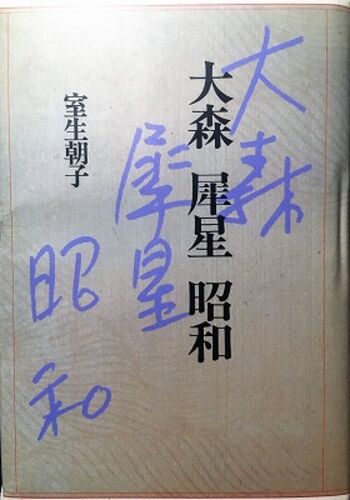 大森 犀星 昭和
室生朝子
大森
犀星
昭和